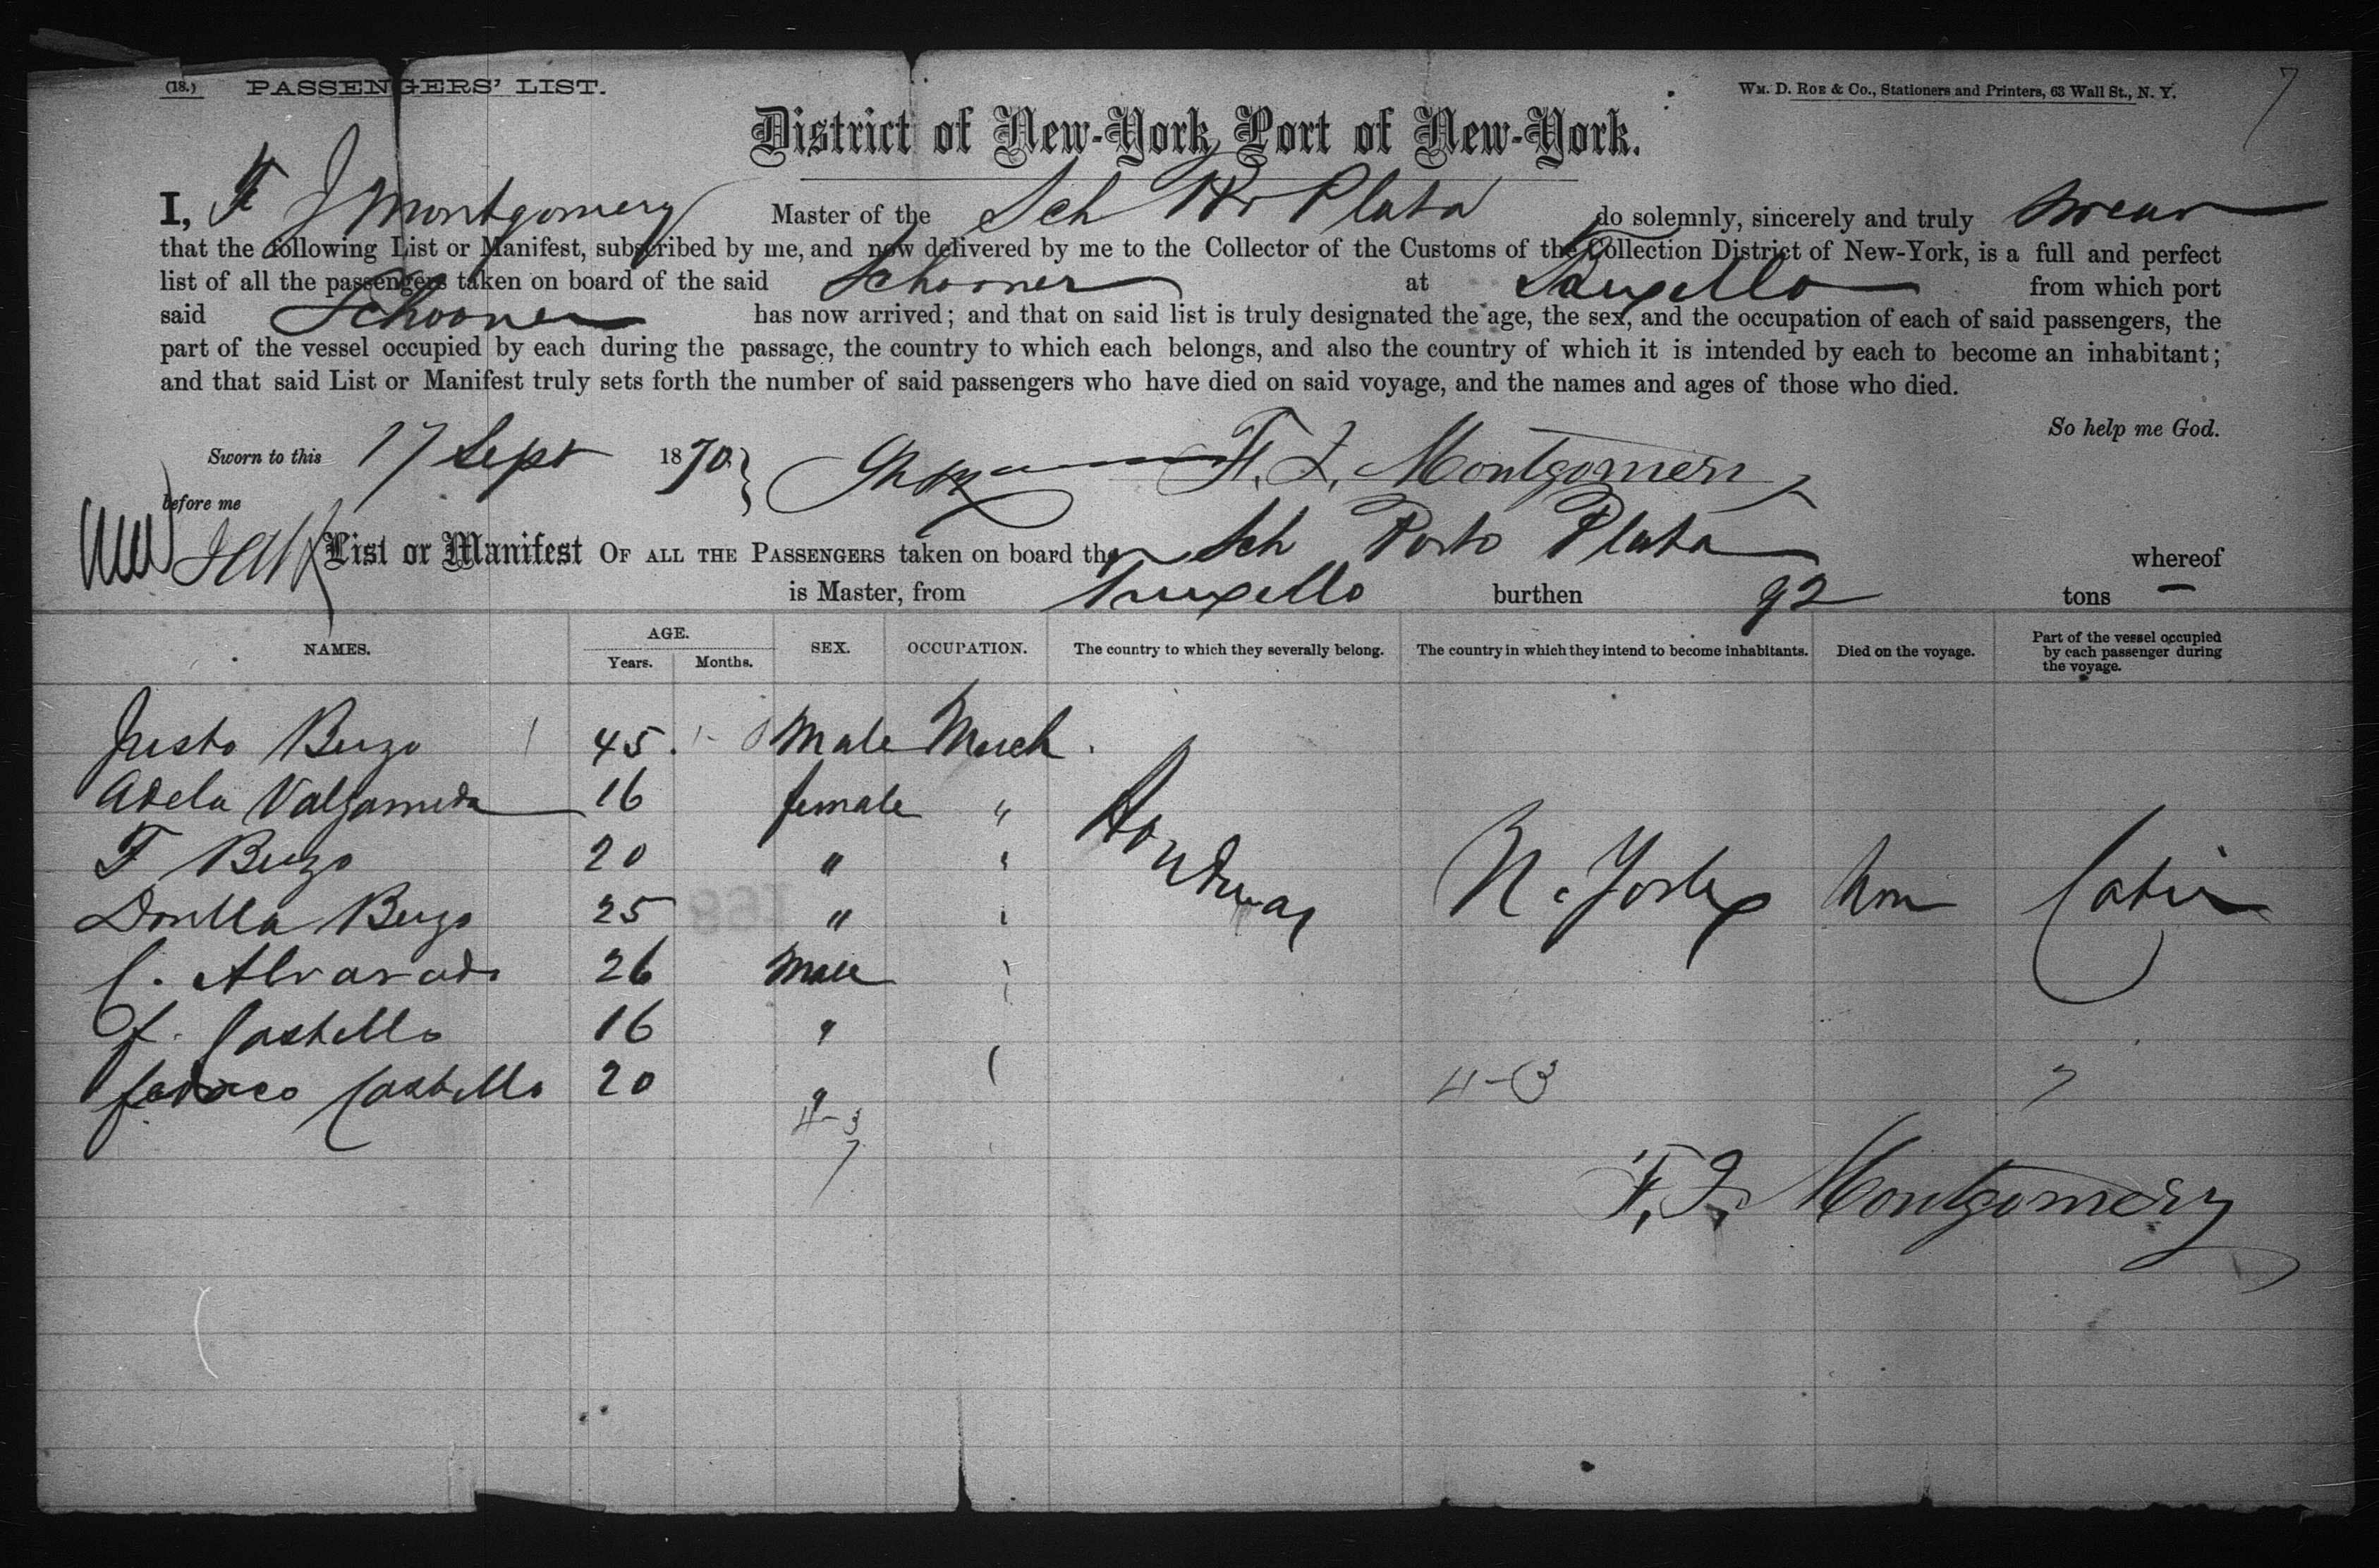 (18.) PASSENGERS' LIST.
WM. D. ROE & Co., Stationers and Printers, 63 Wall St., N. Y.
7
District of New-York, Port of New-York.
I, F J Montgomery Master of the Sch Pr Plata do solemnly, sincerely and truly swear
that the following List or Manifest, subscribed by me, and now delivered by me to the Collector of the Customs of the Collection District of New-York, is a full and perfect
list of all the passengers taken on board of the said Schooner at Truxello from which port
said Schooner has now arrived; and that on said list is truly designated the age, the sex, and the occupation of each of said passengers, the
part of the vessel occupied by each during the passage, the country to which each belongs, and also the country of which it is intended by each to become an inhabitant;
and that said List or Manifest truly sets forth the number of said passengers who have died on said voyage, and the names and ages of those who died.
So help me God.
Sworn to this 17 Sept 1870 F. J. Montgomery
before me
List or Manifest OF ALL THE PASSENGERS taken on board the Sch Porto Plata whereof
is Master, from Truxello burthen 92 tons
NAMES. AGE. Years. Months. SEX. OCCUPATION. The country to which they severally belong. The country in which they intend to become inhabitants. Died on the voyage. Part of the vessel occupied by each passenger during the voyage.
Justo Bugo 45. Male Merch
Adela 16 female "
F Bugo 20 " "
Bugo 25 " "
Honduras N. York Non Cabin
C. Alvarado 26 Male
f. Castello 16 "
Castello 20 "
4-3
4-3 7
7
F. J. Montgomery